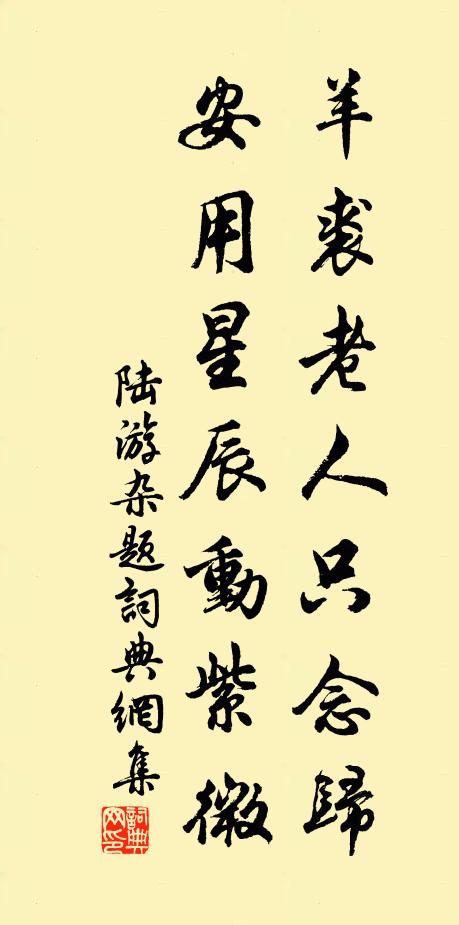 羊裘老人只念歸
安用星辰動紫微
陆游杂题詞典網集
詞典网印